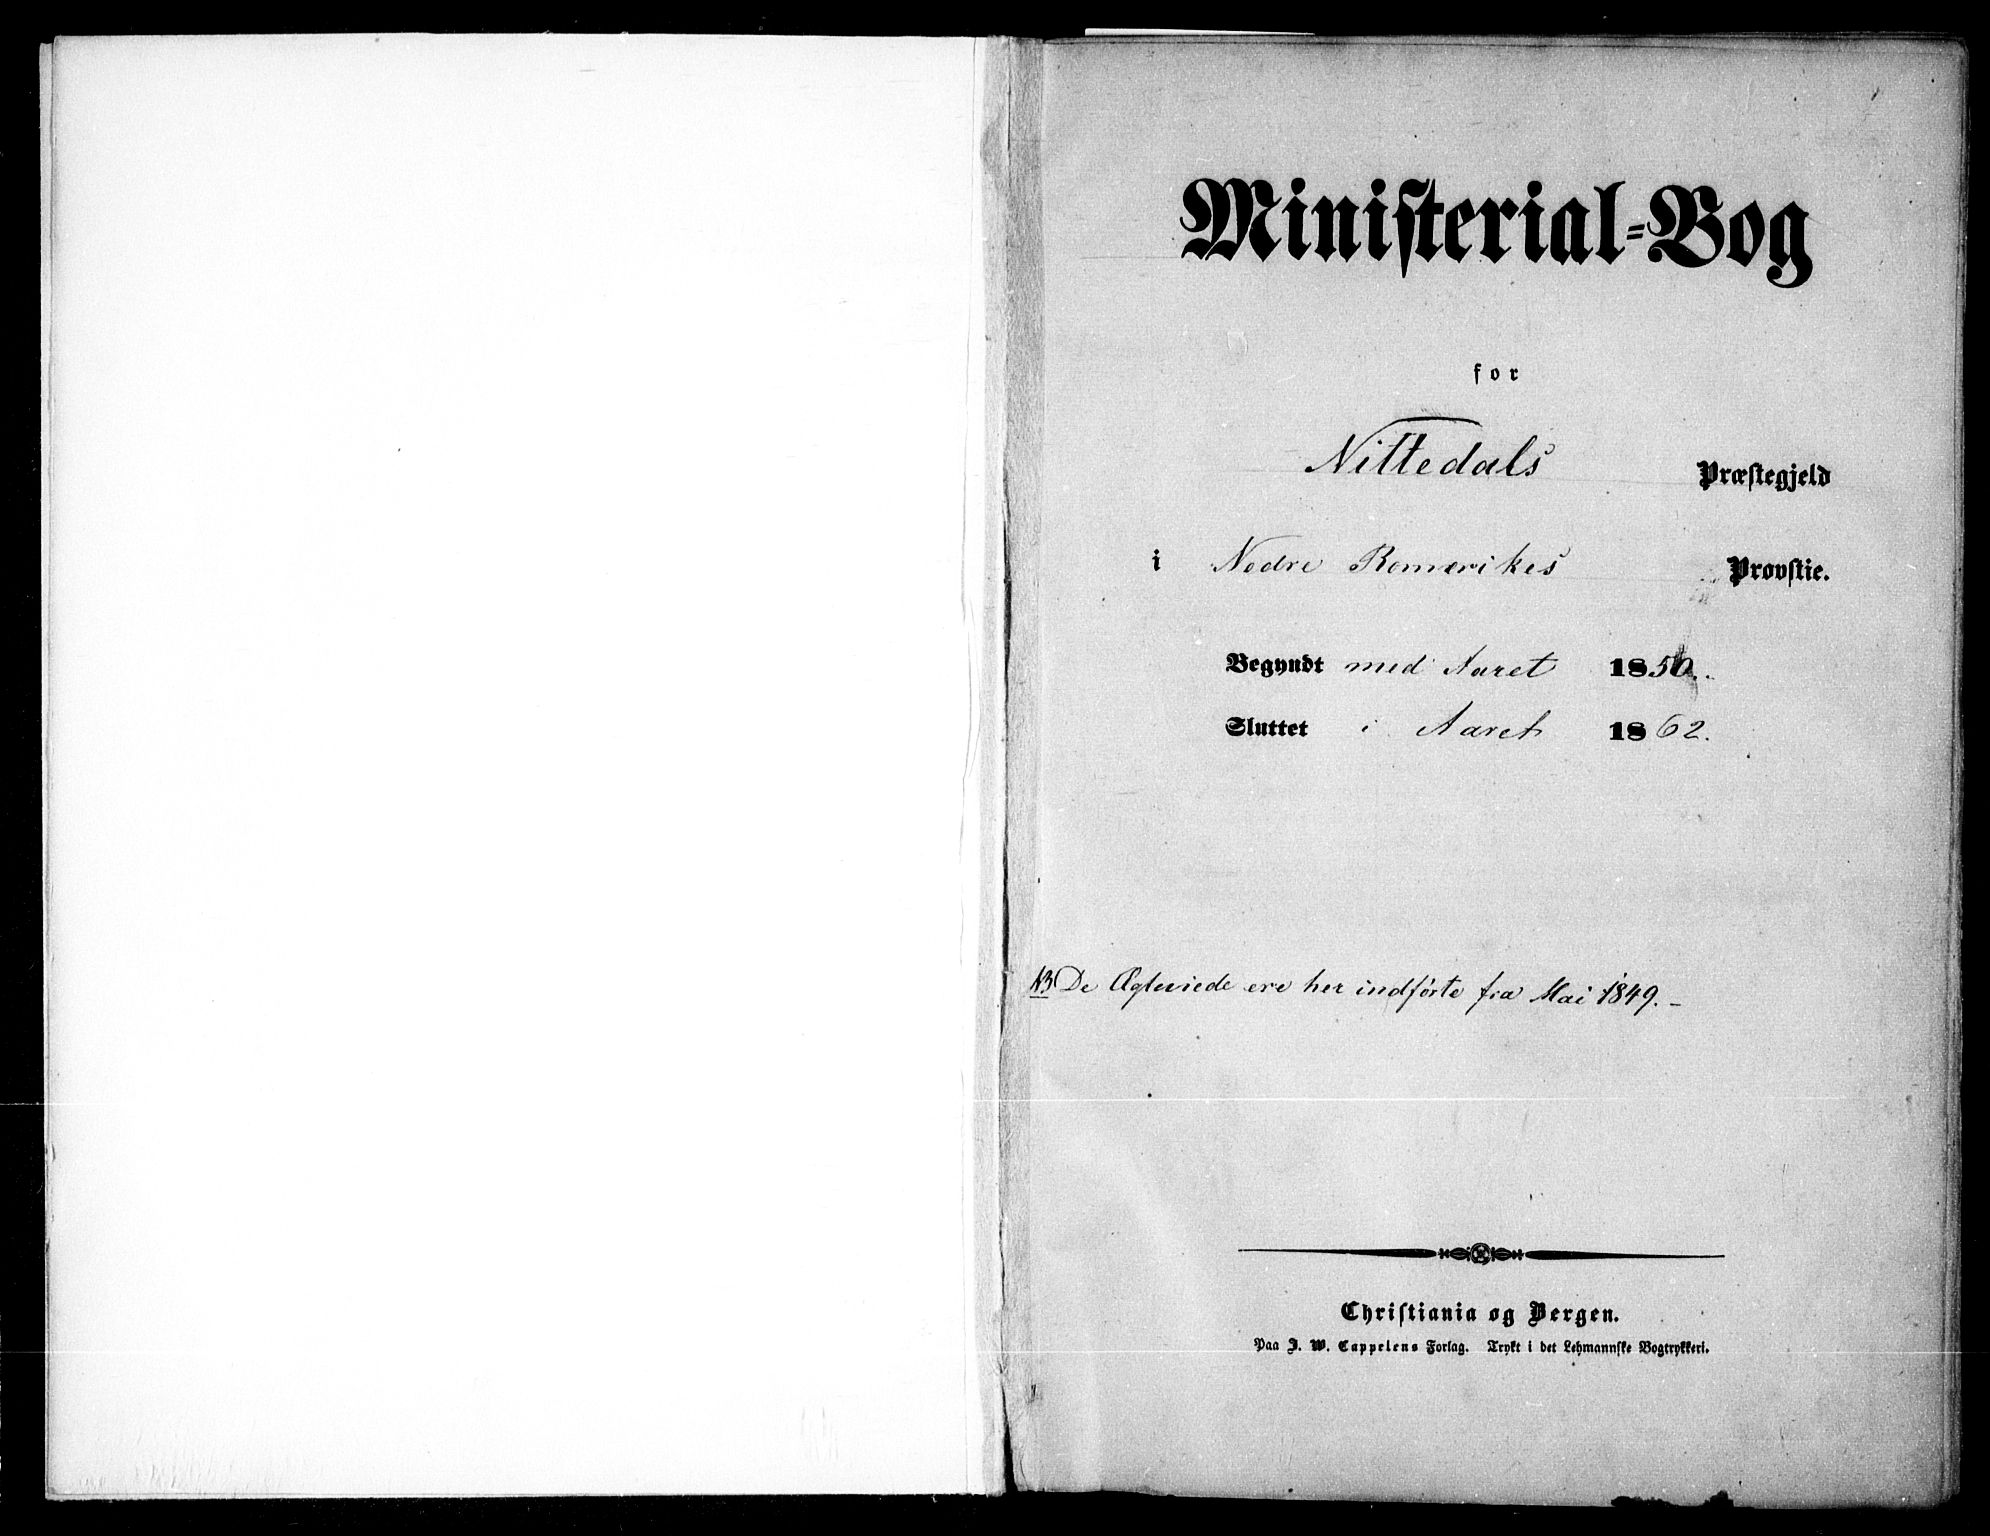 Ministerial-Bog
for
Nittedals Præstegjeld
i Nedre Romerikes Provstie.
Begyndt med Aaret 1850.
Sluttet i Aaret 1862.
NB De Ægteviede ere her indførte fra Mai 1849.-
Christiania og Bergen.
Paa J. W. Cappelens Forlag. Trykt i det Lehmannske Bogtrykkeri.